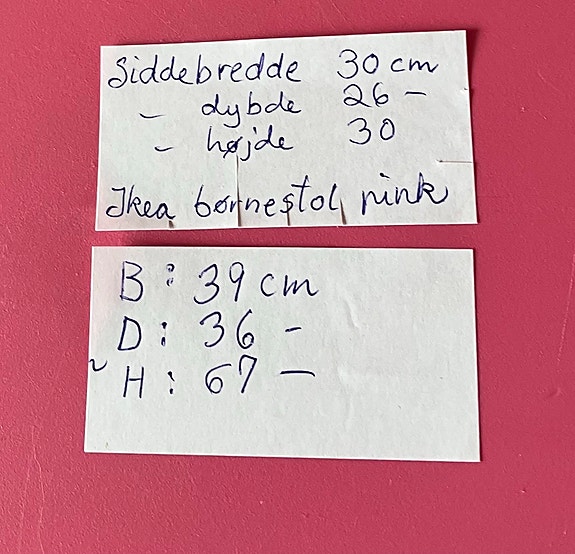 Siddebredde 30 cm
- dybde 26 -
- højde 30
Ikea børnestol pink
B: 39 cm
D: 36 -
H: 67 -